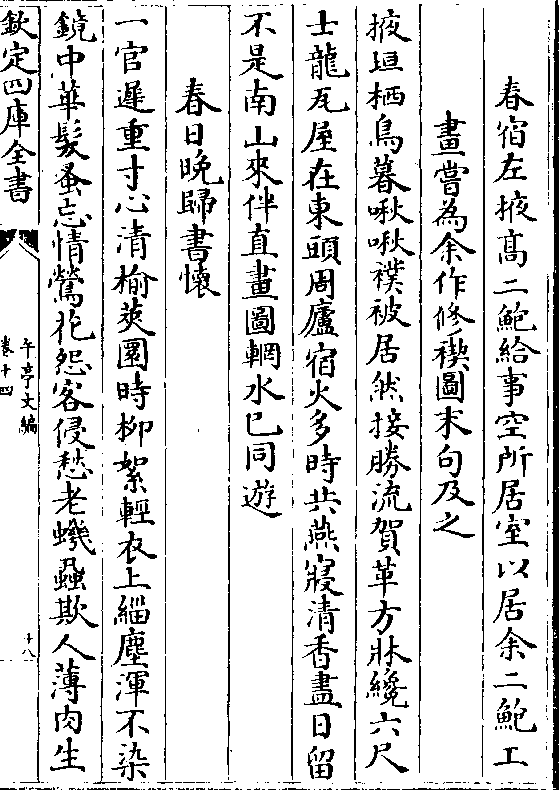 春宿左掖髙二鮑給事空所居室以居余二鮑工
畫嘗為余作修禊圖末句及之
掖垣栖鳥暮啾啾襆被居然接勝流賀革方牀纔六尺
士龍瓦屋在東頭周廬宿火多時共燕寢清香盡日留
不是南山來伴直畫圖輞水已同遊
春日晚歸書懷
一官遲重寸心清榆莢圍時柳絮輕衣上緇塵渾不染
鏡中華髮蚤忘情鶯花怨客侵愁老蟣蝨欺人薄肉生
欽定四庫全書
午亭文編
卷十四
十八